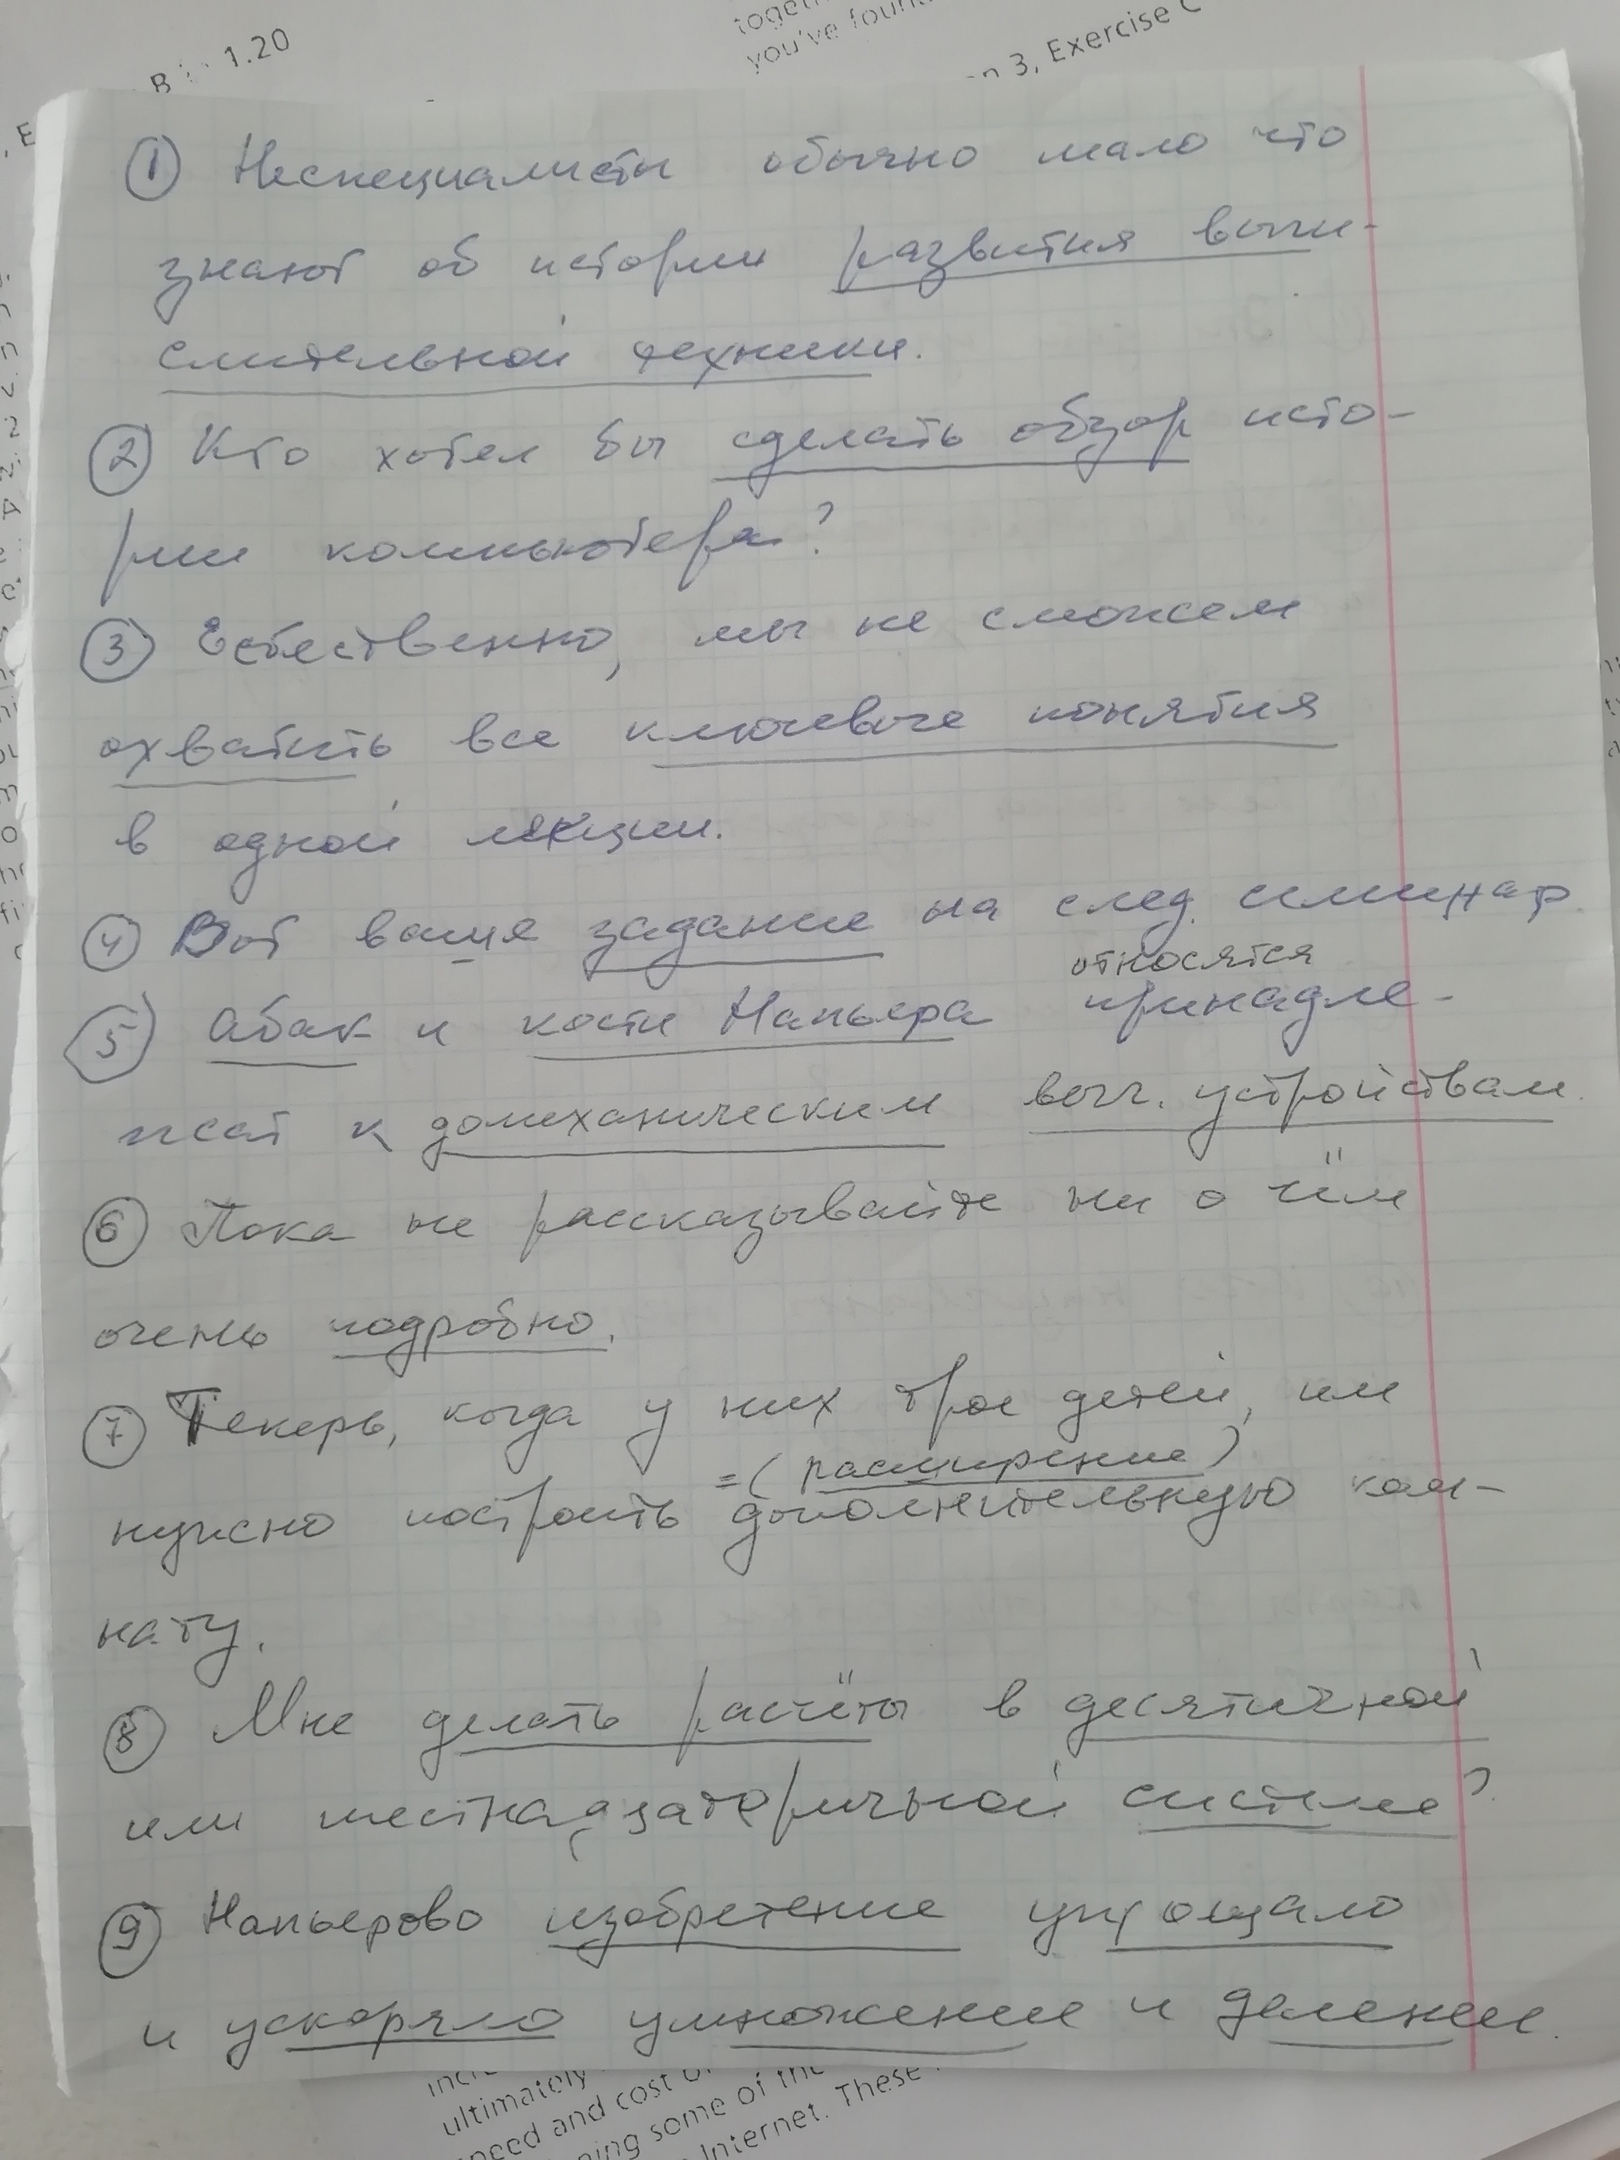 B
1.20
you've foun
n 3, Exercise C
① Неспециалисты обычно мало что
знают об истории развития вычи-
слительной техники.
② Кто хотел бы сделать обзор исто-
рии компьютера?
③ Естественно, мы не сможем
охватить все ключевые понятия
в одной лекции.
④ Вот ваше задание на след. семинар.
относятся
⑤ Абак и кости Напьера принадле-
жат к домеханическим выч. устройствам.
⑥ Пока не рассказывайте ни о чём
очень подробно.
⑦ Теперь, когда у них трое детей, им
=(расширение)
нужно построить дополнительную ком-
нату.
⑧ Мне делать расчёты в десятичной
или шестнадцатеричной системе?
⑨ Напьерово изобретение упрощало
и ускоряло умножение и деление.
ultimately
and cost
some of the
Internet. These